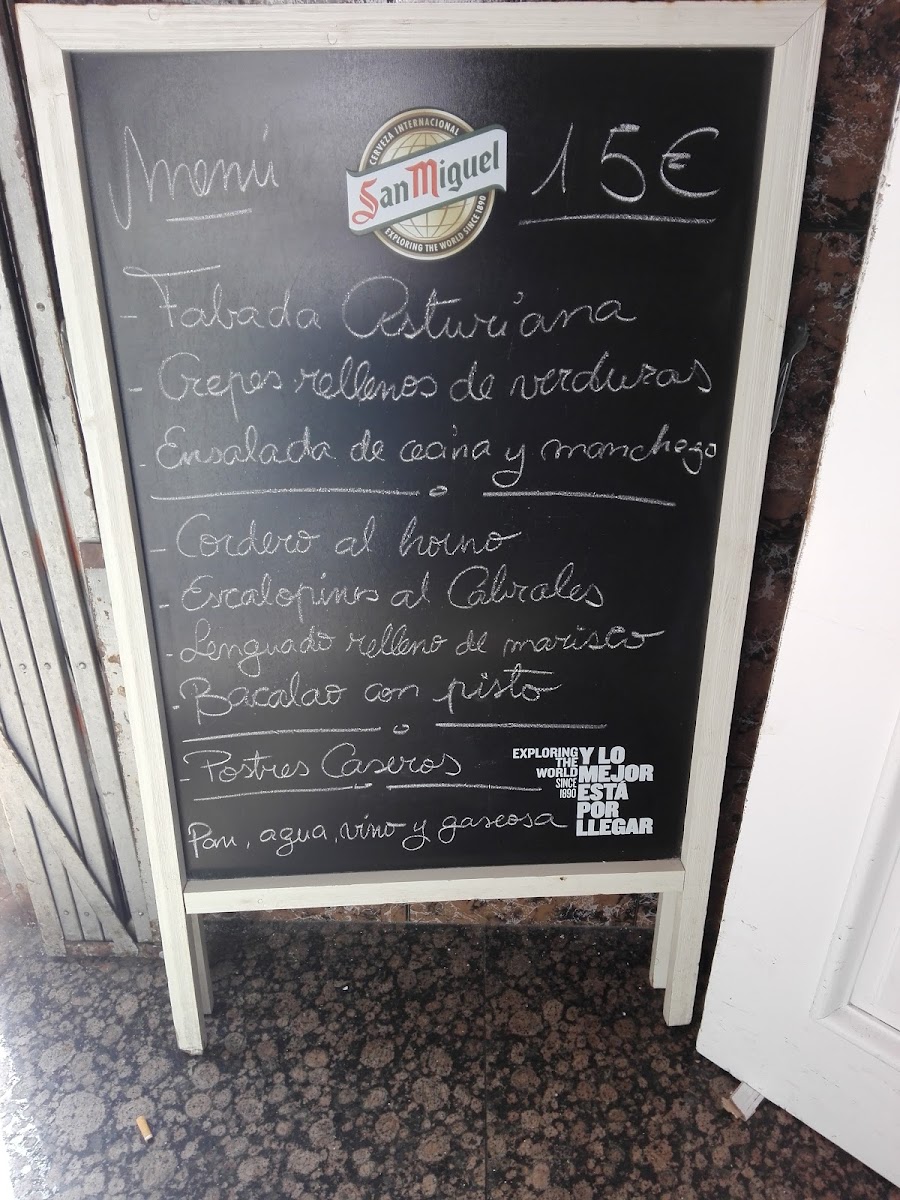 Menú
CERVEZA INTERNACIONAL
San Miguel
EXPLORING THE WORLD SINCE 1890
15€
- Fabada Asturiana
- Crepes rellenos de verduras
- Ensalada de cecina y manchego
- Cordero al horno
- Escalopines al Cabrales
- Lenguado relleno de marisco
- Bacalao con pisto
- Postres Caseros
Pan, agua, vino y gaseosa
EXPLORING
THE
WORLD
SINCE
1890
Y LO
MEJOR
ESTÁ
POR
LLEGAR